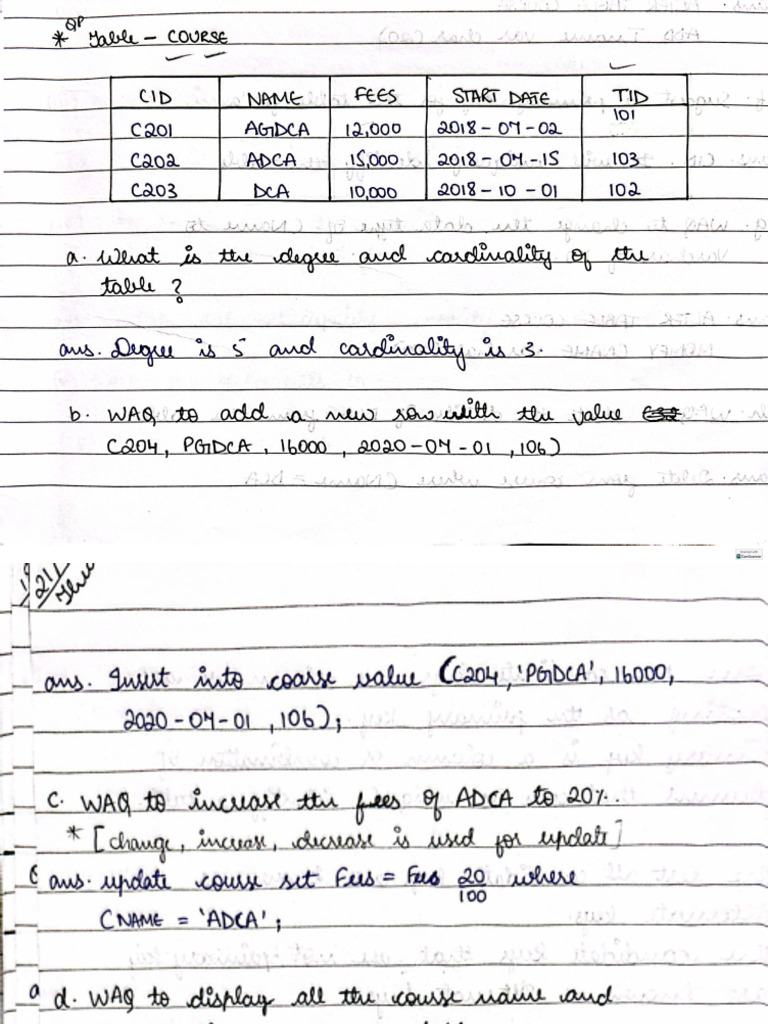 * QP Table - COURSE
CID NAME FEES START DATE TID
C201 AGDCA 12,000 2018-07-02 101
C202 ADCA 15,000 2018-04-15 103
C203 DCA 10,000 2018-10-01 102
a. What is the degree and cardinality of the
table?
ans. Degree is 5 and cardinality is 3.
b. WAQ to add a new row with the value
C204, PGDCA, 16000, 2020-04-01, 106)
ans. Insert into coarse value (C204, 'PGDCA', 16000,
2020-04-01, 106);
c. WAQ to increase the fees of ADCA to 20%.
* [change, increase, decrease is used for update]
ans. update course set Fees = Fees 20/100 where
CNAME = 'ADCA';
d. WAQ to display all the course name and